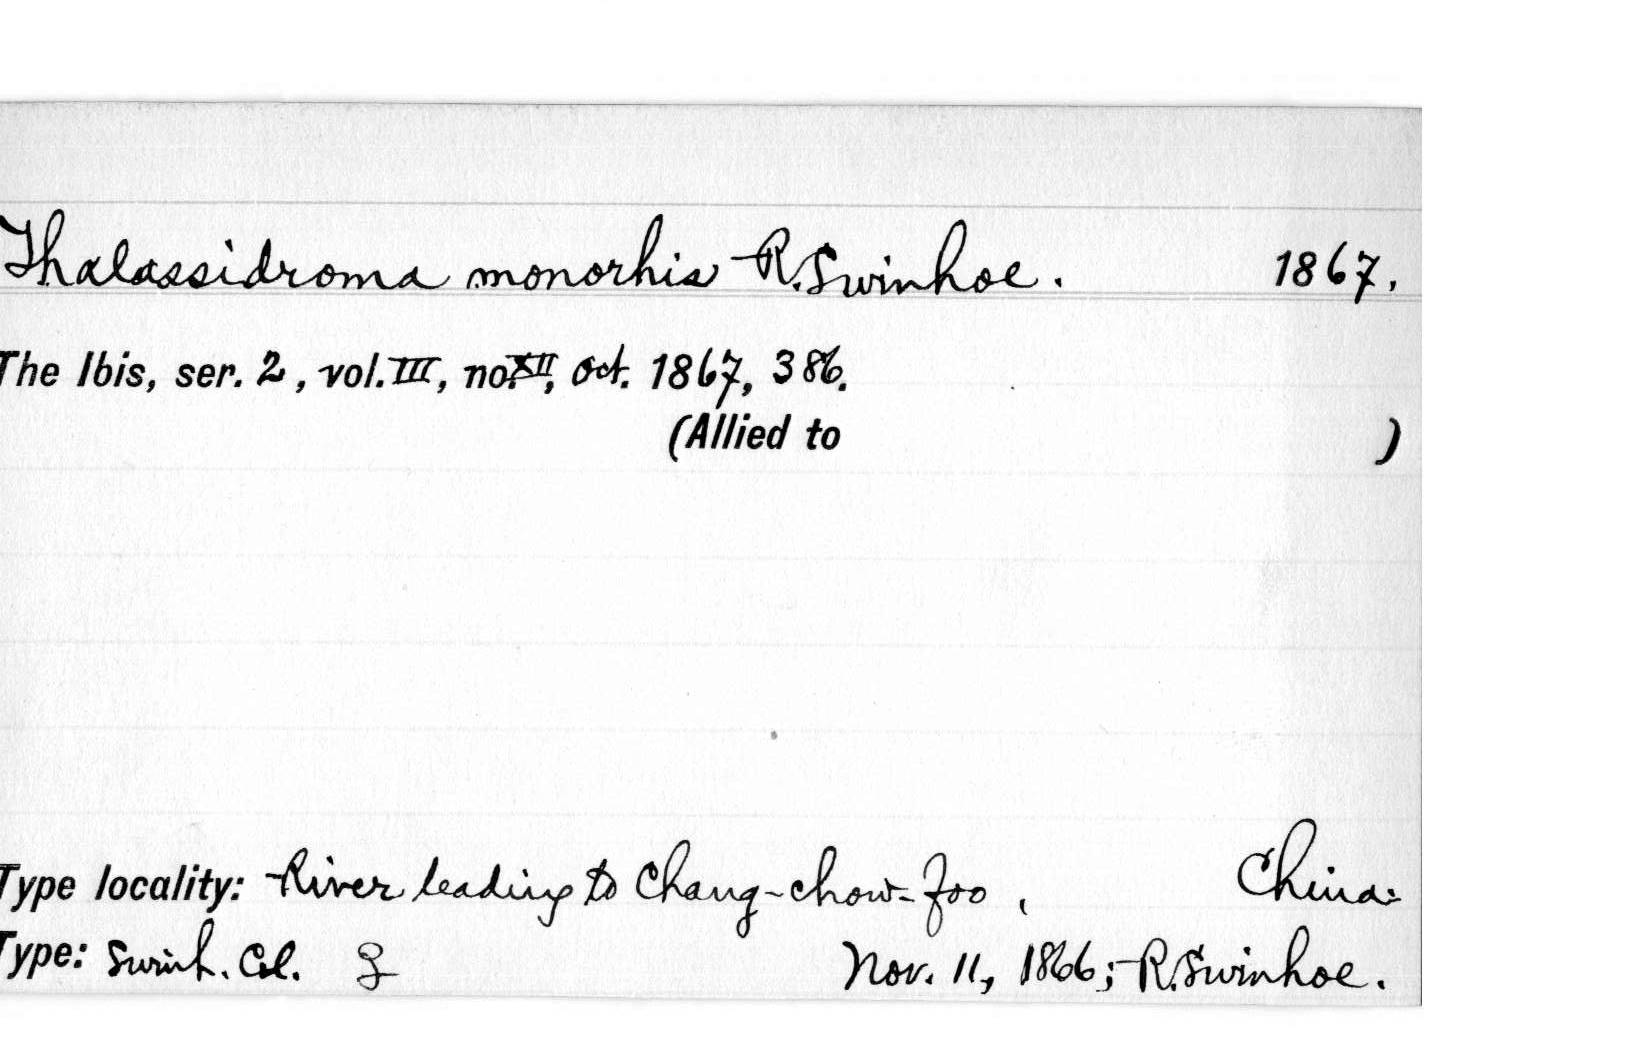 Thalassidroma monorhis R. Swinhoe. 1867.
The Ibis, ser. 2, vol. III, no. XII, Oct. 1867, 386.
(Allied to )
Type locality: River leading to Chang-chow-foo, China:
Type: Swinh. Col. ♀ Nov. 11, 1866; R. Swinhoe.